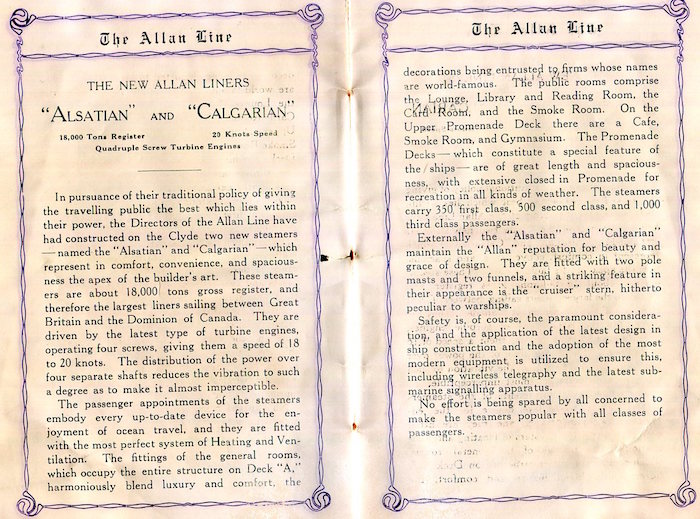 The Allan Line
THE NEW ALLAN LINERS
"ALSATIAN" AND "CALGARIAN"
18,000 Tons Register 20 Knots Speed
Quadruple Screw Turbine Engines
In pursuance of their traditional policy of giving
the travelling public the best which lies within
their power, the Directors of the Allan Line have
had constructed on the Clyde two new steamers
—named the "Alsatian" and "Calgarian"—which
represent in comfort, convenience, and spacious-
ness the apex of the builder's art. These steam-
ers are about 18,000 tons gross register, and
therefore the largest liners sailing between Great
Britain and the Dominion of Canada. They are
driven by the latest type of turbine engines,
operating four screws, giving them a speed of 18
to 20 knots. The distribution of the power over
four separate shafts reduces the vibration to such
a degree as to make it almost imperceptible.
The passenger appointments of the steamers
embody every up-to-date device for the en-
joyment of ocean travel, and they are fitted
with the most perfect system of Heating and Ven-
tilation. The fittings of the general rooms,
which occupy the entire structure on Deck "A,"
harmoniously blend luxury and comfort, the
The Allan Line
decorations being entrusted to firms whose names
are world-famous. The public rooms comprise
the Lounge, Library and Reading Room, the
Card Room, and the Smoke Room. On the
Upper Promenade Deck there are a Cafe,
Smoke Room, and Gymnasium. The Promenade
Decks—which constitute a special feature of
the ships—are of great length and spacious-
ness, with extensive closed in Promenade for
recreation in all kinds of weather. The steamers
carry 350 first class, 500 second class, and 1,000
third class passengers.
Externally the "Alsatian" and "Calgarian"
maintain the "Allan" reputation for beauty and
grace of design. They are fitted with two pole
masts and two funnels, and a striking feature in
their appearance is the "cruiser" stern, hitherto
peculiar to warships.
Safety is, of course, the paramount considera-
tion, and the application of the latest design in
ship construction and the adoption of the most
modern equipment is utilized to ensure this,
including wireless telegraphy and the latest sub-
marine signalling apparatus.
No effort is being spared by all concerned to
make the steamers popular with all classes of
passengers.